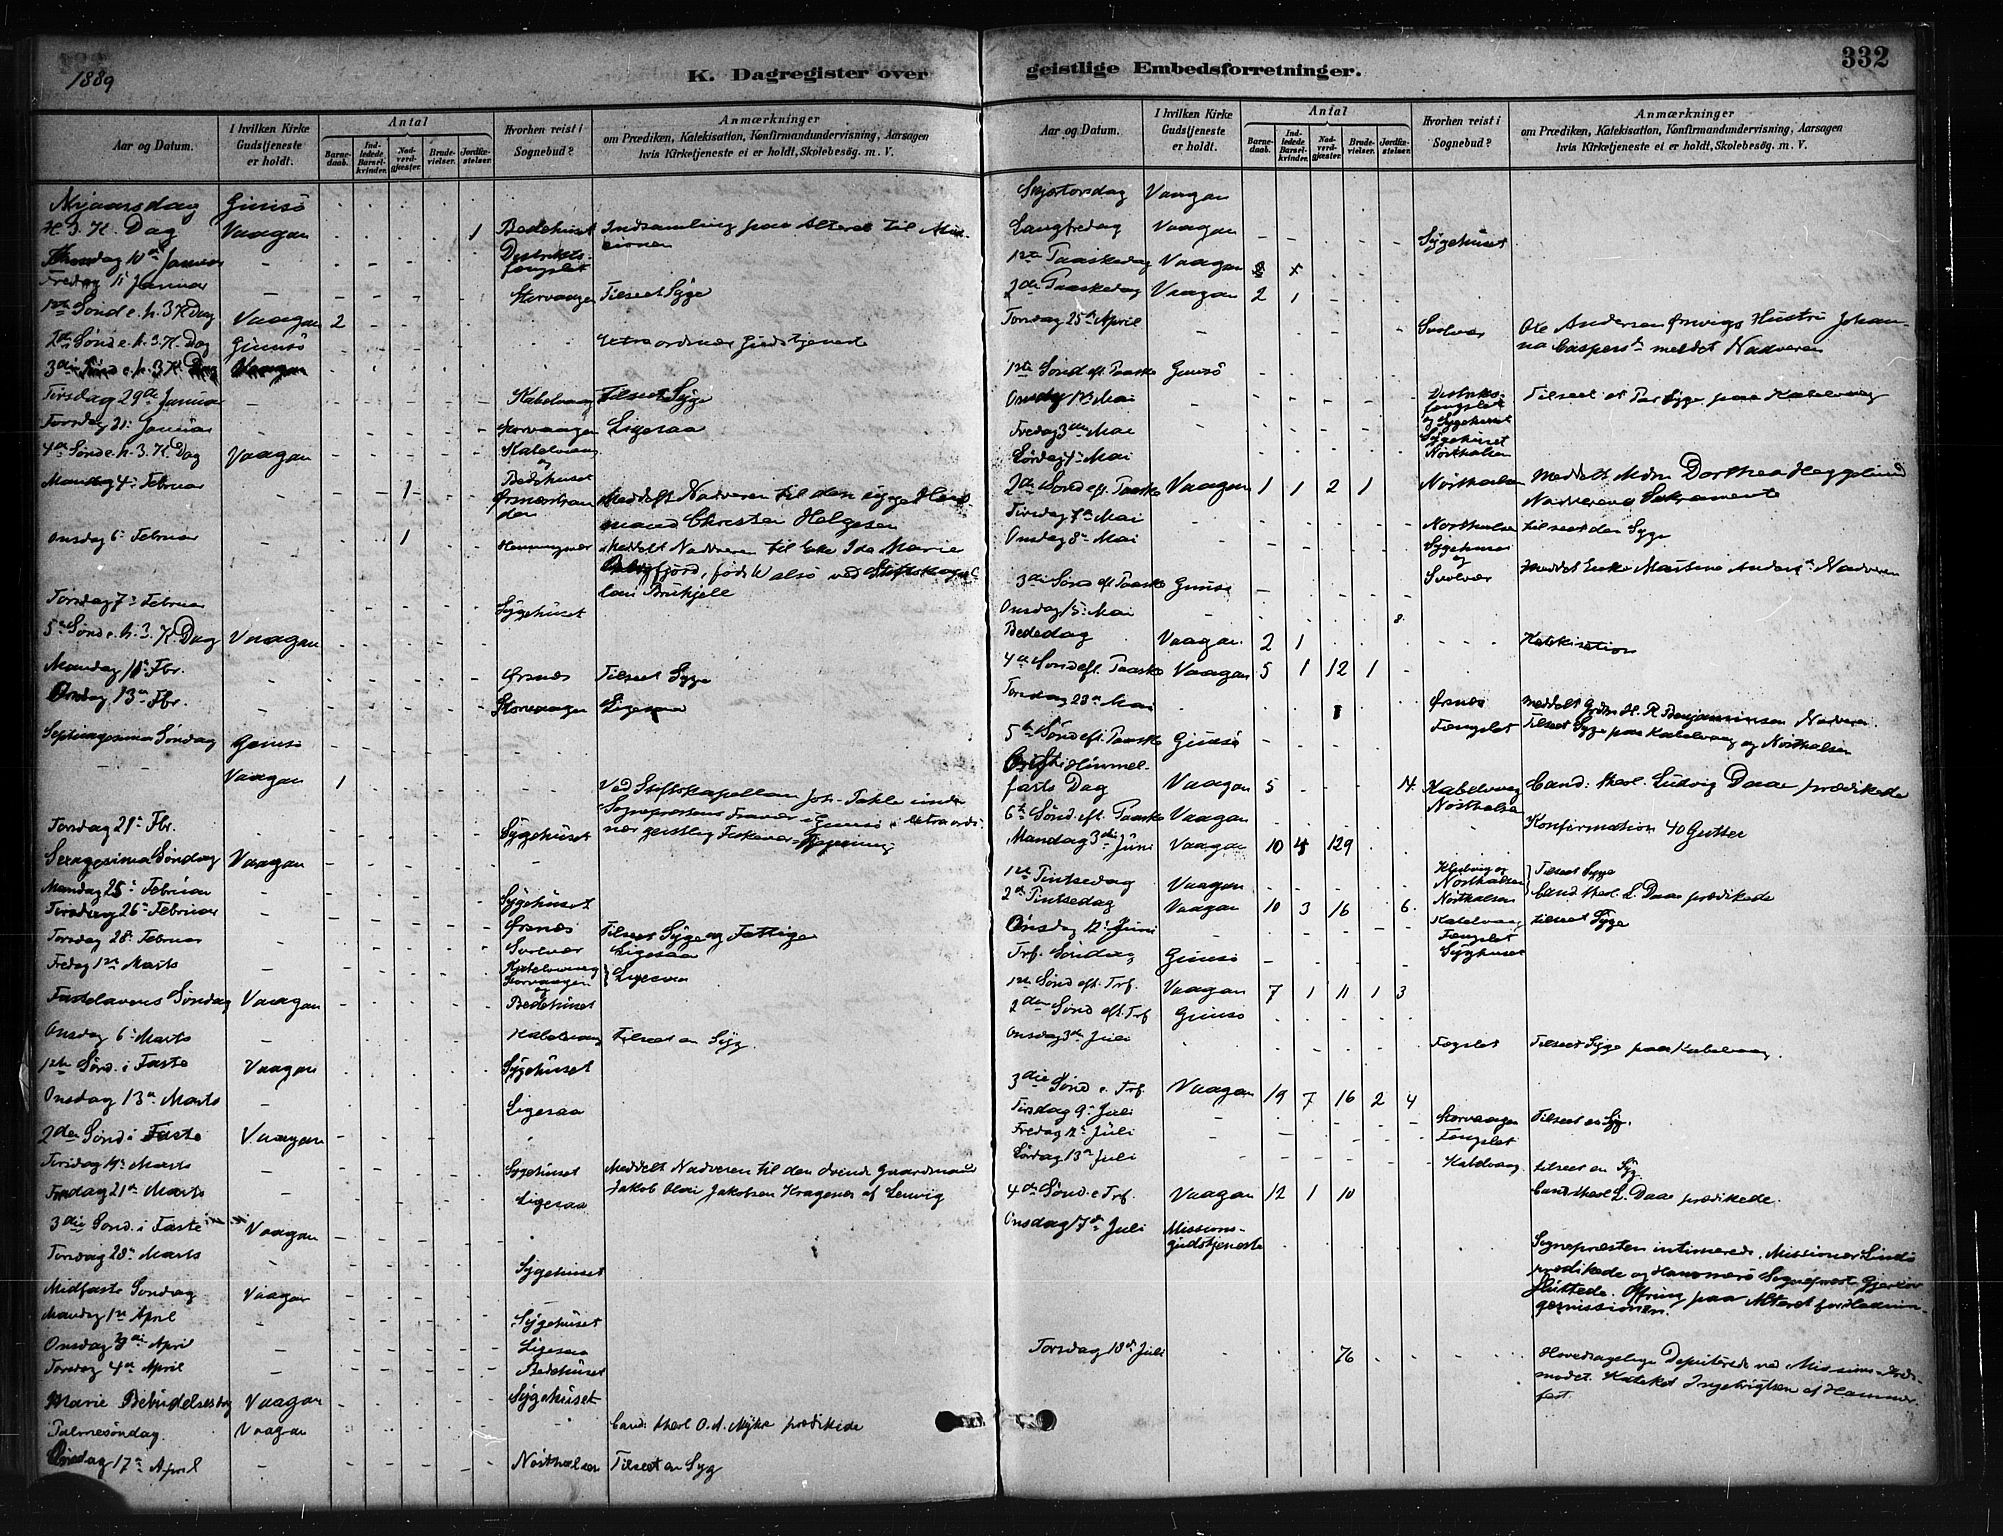 1889
K. Dagregister over
Aar og Datum.
I hvilken Kirke Gudstjeneste er holdt.
Antal
Barne-daab.
Ind-ledede Barsel-kvinder.
Nad-verd-gjæster.
Brude-vielser.
Jordfæ-stelser.
Hvorhen reist i Sognebud?
Anmærkninger
om Prædiken, Katekisation, Konfirmandundervisning, Aarsagen
hvis Kirketjeneste ei er holdt, Skolebesøg. m. V.
Nyaarsdag Gimsö
H. 3. K. Dag Vaagan 1 Bedehuset Indsamling paa Alteret til Mis-
sionen
10de Januar Distrikts-
fængslet
Fredag 11 Januar Storvaagen Tilseet Syge
1ste Sönd e. h. 3 K Dag Vaagan 2
2den Sönd e. h. 3. K. Dag Gimsö Extraordinær Gudstjeneste
3die Sönd e. h. 3 K Dag Vaagan
Tirsdag 29de Januar Kabelvaag Tilseet Syge
Torsdag 31 Januar Storvaagen Ligesaa
4de Sönd e. h. 3. K. Dag Vaagan Kabelvaag
og
Bedehuset
Mandag 4de Februar 1 Meddelt Nadveren til den syge
mand Christen Helgesen
Onsdag 6 Februar 1 Henningsvær Meddelt Nadveren til Enke Ida Marie
Torsdag 7 Februar Sygehuset
5te Sönd e. h. 3. K. Dag Vaagan
Mandag 11 Fbr. Ørsnes Tilseet Syge
Onsdag 13de Fbr. Storvaagen Ligesaa
Septuagesima Söndag Gimsö
Vaagan 1 Ved Stiftskapellan Joh. Takle under
Sognepræstens i Gimsö i extraordi-
nær geistlig
Torsdag 21 Fbr. Sygehuset
Sexagesima Söndag Vaagan
Mandag 25 Februar Sygehuset
Tirsdag 26 Februar Ørsnes Tilseet Syge og Fattige
Torsdag 28 Februar Svolvær Ligesaa
Fredag 1ste Marts Kabelvaag
Storvaagen Ligesaa
og
Fastelavens Söndag Vaagan Bedehuset
Onsdag 6 Marts Kabelvaag Tilseet en Syg.
1ste Sönd. i Faste Vaagan Sygehuset
Onsdag 13de Marts Ligesaa
2den Sönd i Faste Vaagan
Tirsdag 19 Marts Sygehuset Meddelt Nadveren til den döende Gaardmand
Jakob Olai Jakobsen Kragenes af Lenvig
21de Marts Ligesaa
3die Sönd. i Faste Vaagan
Torsdag 28 Marts Sygehuset
Midfaste Söndag Vaagan
Mandag 1ste April Sygehuset
Onsdag 3die April Ligesaa
Torsdag 4de April Bedehuset
Marie Bebudelsesdag Vaagan Sygehuset
Palmesöndag Vaagan Cand: theol O. A. Mÿhre prædikede
Onsdag 17de April Nörthalsen Tilseet en Syg
geistlige Embedsforretninger.
332
Aar og Datum.
I hvilken Kirke Gudstjeneste er holdt.
Antal
Barne-daab.
Ind-ledede Barsel-kvinder.
Nad-verd-gjæster.
Brude-vielser.
Jordfæ-stelser.
Hvorhen reist i Sognebud?
Anmærkninger
om Prædiken, Katekisation, Konfirmandundervisning, Aarsagen
hvis Kirketjeneste ei er holdt, Skolebesøg. m. V.
Skjærtorsdag Vaagan
Langfredag Vaagan Sygehuset
1ste Paaskedag Vaagan
2den Paaskedag Vaagan 2 1
Torsdag 25de April Svolvær Ole Andersen Hustru Johan-
na Caspersdr meddelt Nadveren
1ste Sönd eft. Paaske Gimsö
Onsdag 1ste Mai Distrikts-
fængslet
og Sygehuset
Tilseet et Par Syge paa Kabelvaag
Fredag 3die Mai Sygehuset
Lördag 4 Mai Nörthalsen
2den Sönd eft. Paaske Vaagan 1 1 2 1 Nörthalsen Meddelt Mdm Dorthea Hegglund
Nadverens Sakramente
Tirsdag 7de Mai Nörthalsen tilseet den Syge
Onsdag 8de Mai Sygehuset
og
Svolvær Meddelt Enke Martine Anders Nadveren
3die Sönd eft Paaske Gimsö
Onsdag 15 Mai 8.
Bededag Vaagan 2 1 Katekisation
4de Sönd eft. Paaske Vaagan 5 1 12 1
Torsdag 23de Mai 1 Ørsnes Meddelt H. R. Benjaminsen Nadveren.
Fængslet Tilseet Syge paa Kabelvaag og Nörthalsen
5te Sönd eft. Paaske Gimsö
Christi Himmel-
farts Dag Vaagan 5 4 Kabelvaag
Nörthalsen
Cand: theol. Ludvig Daae prædikede
6te Sönd. eft. Paaske Vaagan
Mandag 3die Juni Vaagan 10 4 129 Konfirmation 40 Gutter
1ste Pintsedag Vaagan og
Nörthalsen Tilseet Syge
2den Pintsedag Vaagan 10 3 16 6. Nörthalsen Cand theol. L. Daae prædikede
Onsdag 12 Juni Kabelvaag tilseet Syge
Fængslet
Trf. Söndag Gimsö Sygehuset
1ste Sönd eft. Trf. Vaagan 7 1 11 1 3
2den Sönd eft. Trf Gimsö
Onsdag 3die Juli Fængslet Tilseet Syge paa Kabelvaag
3die Sönd e. Trf. Vaagan 19 7 16 2 4
Tirsdag 9 Juli Storvaagen Tilseet en Syg.
Fredag 12 Juli Fængslet
Lördag 13de Juli Kabelvaag tilseet en Syg
4de Sönd. e Trf. Vaagan 12 1 10 Cand theol L. Daae prædikede.
Onsdag 17de Juli Missions-
gudstjeneste
Sognepræsten intimerede, Missionær Lindö
prædikede og Hammerö Sognepræst Gjerlöv
sluttede. Ofring paa Alteret for Hednin-
gemissionen.
Torsdag 18de Juli 76 Hovedsagelige Deputerede ved Missions-Kreds-
mödet. Kateket Ingebrigtsen af Hammer-
fest.